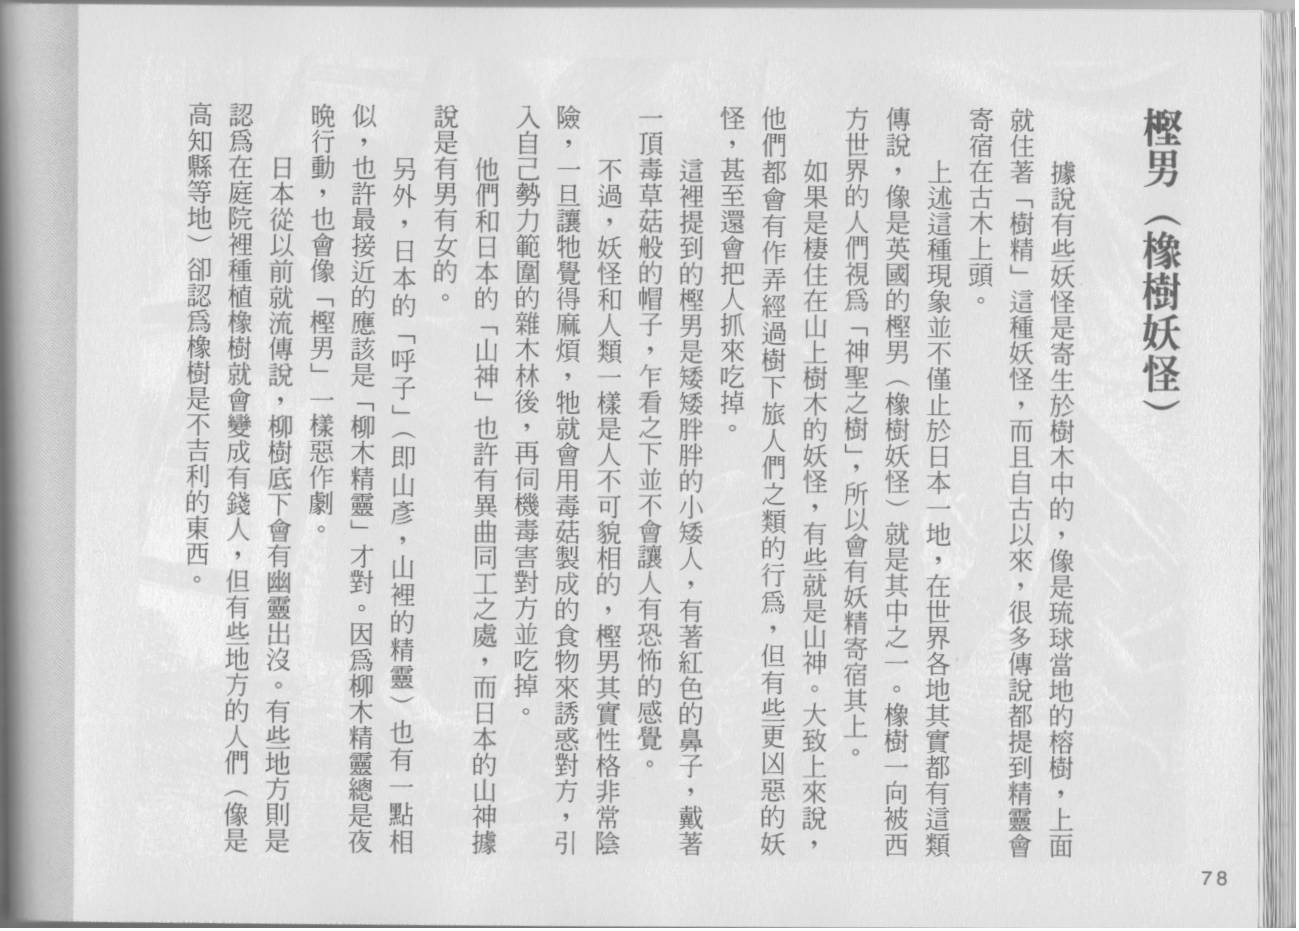 樫男（橡樹妖怪）
據說有些妖怪是寄生於樹木中的，像是琉球當地的榕樹，上面
就住著「樹精」這種妖怪，而且自古以來，很多傳說都提到精靈會
寄宿在古木上頭。
上述這種現象並不僅止於日本一地，在世界各地其實都有這類
傳說，像是英國的樫男（橡樹妖怪）就是其中之一。橡樹一向被西
方世界的人們視爲「神聖之樹」，所以會有妖精寄宿其上。
如果是棲住在山上樹木的妖怪，有些就是山神。大致上來說，
他們都會有作弄經過樹下旅人們之類的行爲，但有些更凶惡的妖
怪，甚至還會把人抓來吃掉。
這裡提到的樫男是矮矮胖胖的小矮人，有著紅色的鼻子，戴著
一頂毒草菇般的帽子，乍看之下並不會讓人有恐怖的感覺。
不過，妖怪和人類一樣是人不可貌相的，樫男其實性格非常陰
險，一旦讓牠覺得麻煩，牠就會用毒菇製成的食物來誘惑對方，引
入自己勢力範圍的雜木林後，再伺機毒害對方並吃掉。
他們和日本的「山神」也許有異曲同工之處，而日本的山神據
說是有男有女的。
另外，日本的「呼子」（即山彥，山裡的精靈）也有一點相
似，也許最接近的應該是「柳木精靈」才對。因爲柳木精靈總是夜
晚行動，也會像「樫男」一樣惡作劇。
日本從以前就流傳說，柳樹底下會有幽靈出沒。有些地方則是
認爲在庭院裡種植橡樹就會變成有錢人，但有些地方的人們（像是
高知縣等地）卻認爲橡樹是不吉利的東西。
78